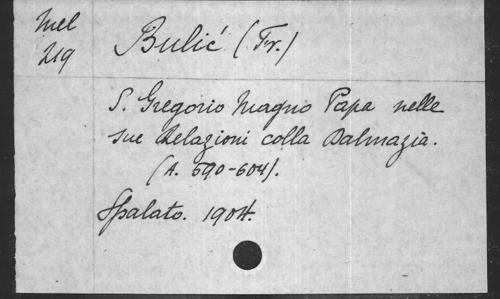 Mel
219
Bulić (Fr.)
S. Gregorio Magno Papa nelle
sue Relazioni colla Dalmazia.
(A. 590-604).
Spalato. 1904.